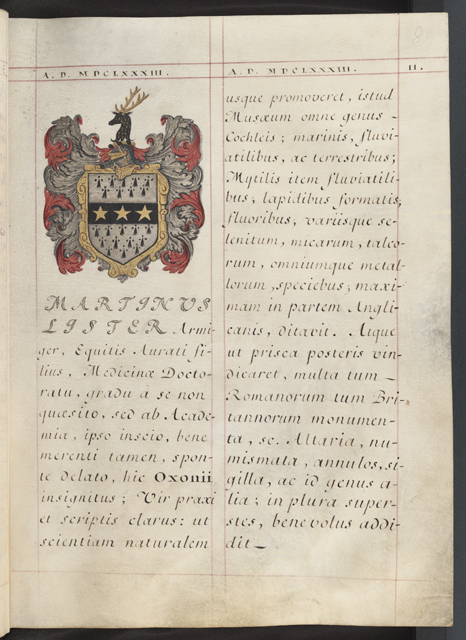 8
A. D. MDCLXXXIII.
MARTINUS
LISTER Armi-
ger, Equitis Aurati fi-
lius, Medicinæ Docto-
ratu, gradu à se non
quæsito, sed ab Acade-
mia, ipso inscio, bene
merenti tamen, spon-
te delato, hic Oxonii
insignitus; Vir praxi
et scriptis clarus: ut
scientiam naturalem
A. D. MDCLXXXIII. 11.
usque promoveret, istud
Musæum omne genus -
Cochleis; marinis, fluvi-
atilibus, ac terrestribus;
Mytilis item fluviatili-
bus, lapidibus formatis,
fluoribus; variisque se-
lenitum, micarum, talco-
rum, omniumque metal-
lorum, speciebus; maxi-
mam in partem Angli-
canis, ditavit. Atque
ut prisca posteris vin-
dicaret, multa tum -
Romanorum tum Bri-
tannorum monumen-
ta, sc. Altaria, nu-
mismata, annulos, si-
gilla, ac id genus a-
lia; in plura super-
stes, benevolus addi-
dit -